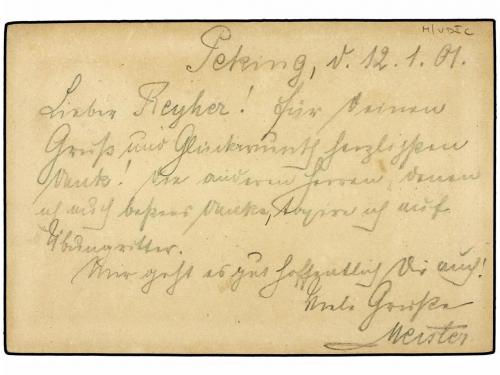 M/VDIC
Peking, d. 12.1.01.
Lieber Reyher! Für Deinen
Gruß und Glückwunsch herzlichsten
Dank! Die anderen Herren, denen
ich auch bestens danke, ich auf
Mir geht es gut hoffentlich Dir auch!
Viele Grüße
Meister